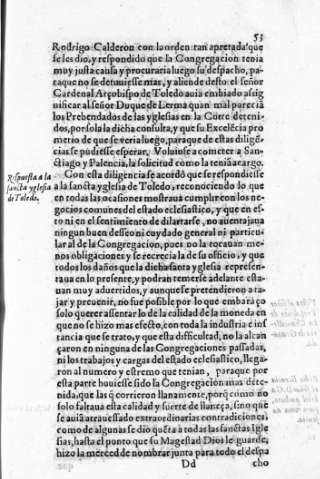 53
Rodrigo Calderon con la orden tan apretada que
se les dio, y respondido que la Congregacion tenia
muy justa causa y procuraria luego su despacho, pa-
raque no se detuuiesse mas, y aliende desto el señor
Cardenal Arçobispo de Toledo auia embiado a sig
nificar al señor Duque de Lerma quan mal parecia
los Prebendados de las yglesias en la Corte deteni-
dos, por sola la dicha consulta, y que su Excelẽcia pro
metio de que se veria luego, paraque de estas diligẽ-
cias se pudiesse esperar. Voluiose a cometer a San-
tiago y Palencia, la solicitud como la tenia a cargo.
Con esta diligencia se acordò que se respondiesse
a la sancta yglesia de Toledo, reconociendo lo que
en todas las ocasiones mostraua cumplir con los ne-
gocios comunes del estado eclesiastico, y que en ef-
to ni en el sentimiento de dilatarse, no auentajaua
ningun buen desseo ni cuydado general ni particu-
lar al de la Congregacion, pues no la tocauan me-
nos obligaciones y se recrecia la de su officio, y que
todos los daños que la dicha sancta yglesia represen-
taua en lo presente, y podran temerse adelante esta-
uan muy aduertidos, y aunque se pretendieron ata-
jar y preuenir, no fue posible por lo que embaraço
solo querer assentar lo de la calidad de la moneda en
que no se hizo mas efecto, con toda la industria e ins
tancia que se trato, y que esta difficultad, no la alcan
çaron en ninguna de las Congregaciones passadas,
ni los trabajos y cargas del estado eclesiastico, llega-
ron al numero y estremo que tenian, paraque por
esta parte huuiesse sido la Congregacion mas dete-
nida, que las q̃ corrieron llanamente, porq̃ como no
solo faltaua esta calidad y suerte de llaneça, sino que
se auia atrauessado extraordinarias contradiciones
como de algunas se dio quẽta a todas las sanctas Igle
sias, hasta el punto que su Magestad Dios le guarde,
hizo la merced de nombrar junta para todo el despa
Dd cho
Respuesta a la
sancta yglesia
de Toledo.